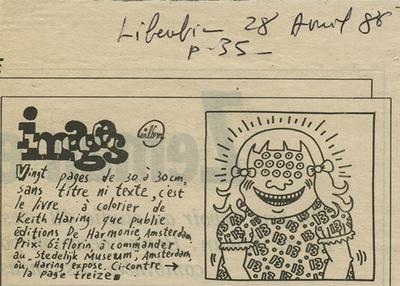 Libération 28 Avril 88
p. 35
images Willem
Vingt pages de 30 à 30 cm,
sans titre ni texte, c'est
le livre à colorier de
Keith Haring que publie
éditions De Harmonie, Amsterdam,
Prix: 6½ florin, à commander
au Stedelijk Museum, Amsterdam,
où Haring expose. Ci-contre →
la page treize